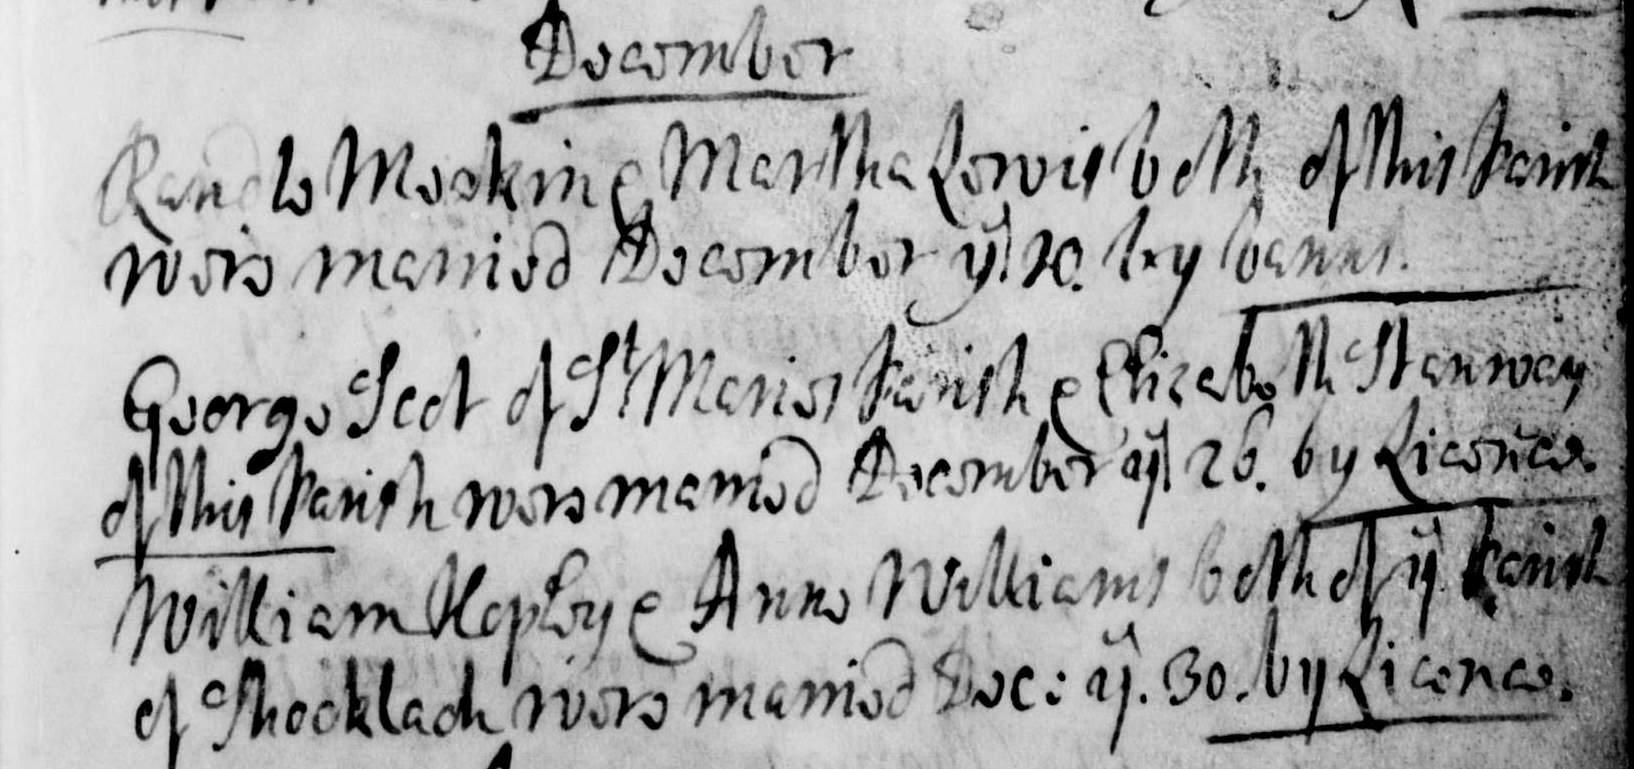 December
Randle Meakin & Martha Lewis both of this Parish
were married December ye 20. by banns.
George Scot of St Maries Parish & Elizabeth Stanway
of this Parish were married December ye 26. by Licence.
William Hopley & Anne Williams both of ye Parish
of Shocklach were married Dec: ye. 30. by Licence.